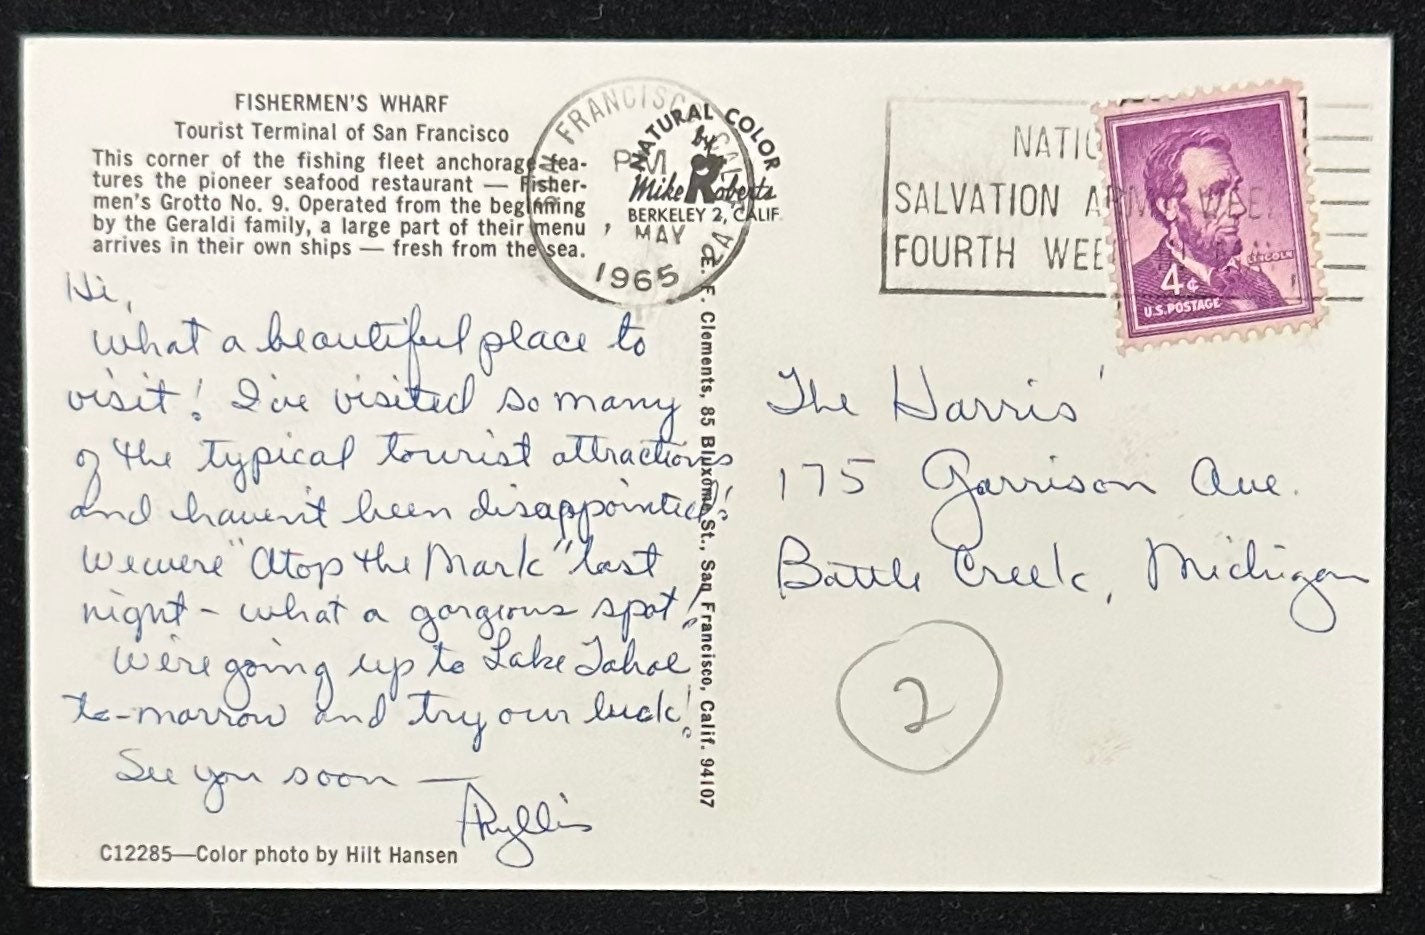 FISHERMEN'S WHARF
Tourist Terminal of San Francisco
This corner of the fishing fleet anchorage fea-
tures the pioneer seafood restaurant — Fisher-
men's Grotto No. 9. Operated from the beginning
by the Geraldi family, a large part of their menu
arrives in their own ships — fresh from the sea.
SAN FRANCISCO CALIFORNIA
PM
MAY
1965
NATURAL COLOR
by
Mike Roberts
BERKELEY 2, CALIF.
SALVATION ARMY WEEK
FOURTH WEE
LINCOLN
4¢
U.S. POSTAGE
Hi,
What a beautiful place to
visit! I've visited so many
of the typical tourist attractions
and haven't been disappointed!
We were "Atop the Mark" last
night – what a gorgeous spot!
We're going up to Lake Tahoe
to-morrow and try our luck!
See you soon —
Phyllis
C12285—Color photo by Hilt Hansen
E. F. Clements, 85 Bluxome St., San Francisco, Calif. 94107
The Harris'
175 Garrison Ave.
Battle Creek, Michigan
2